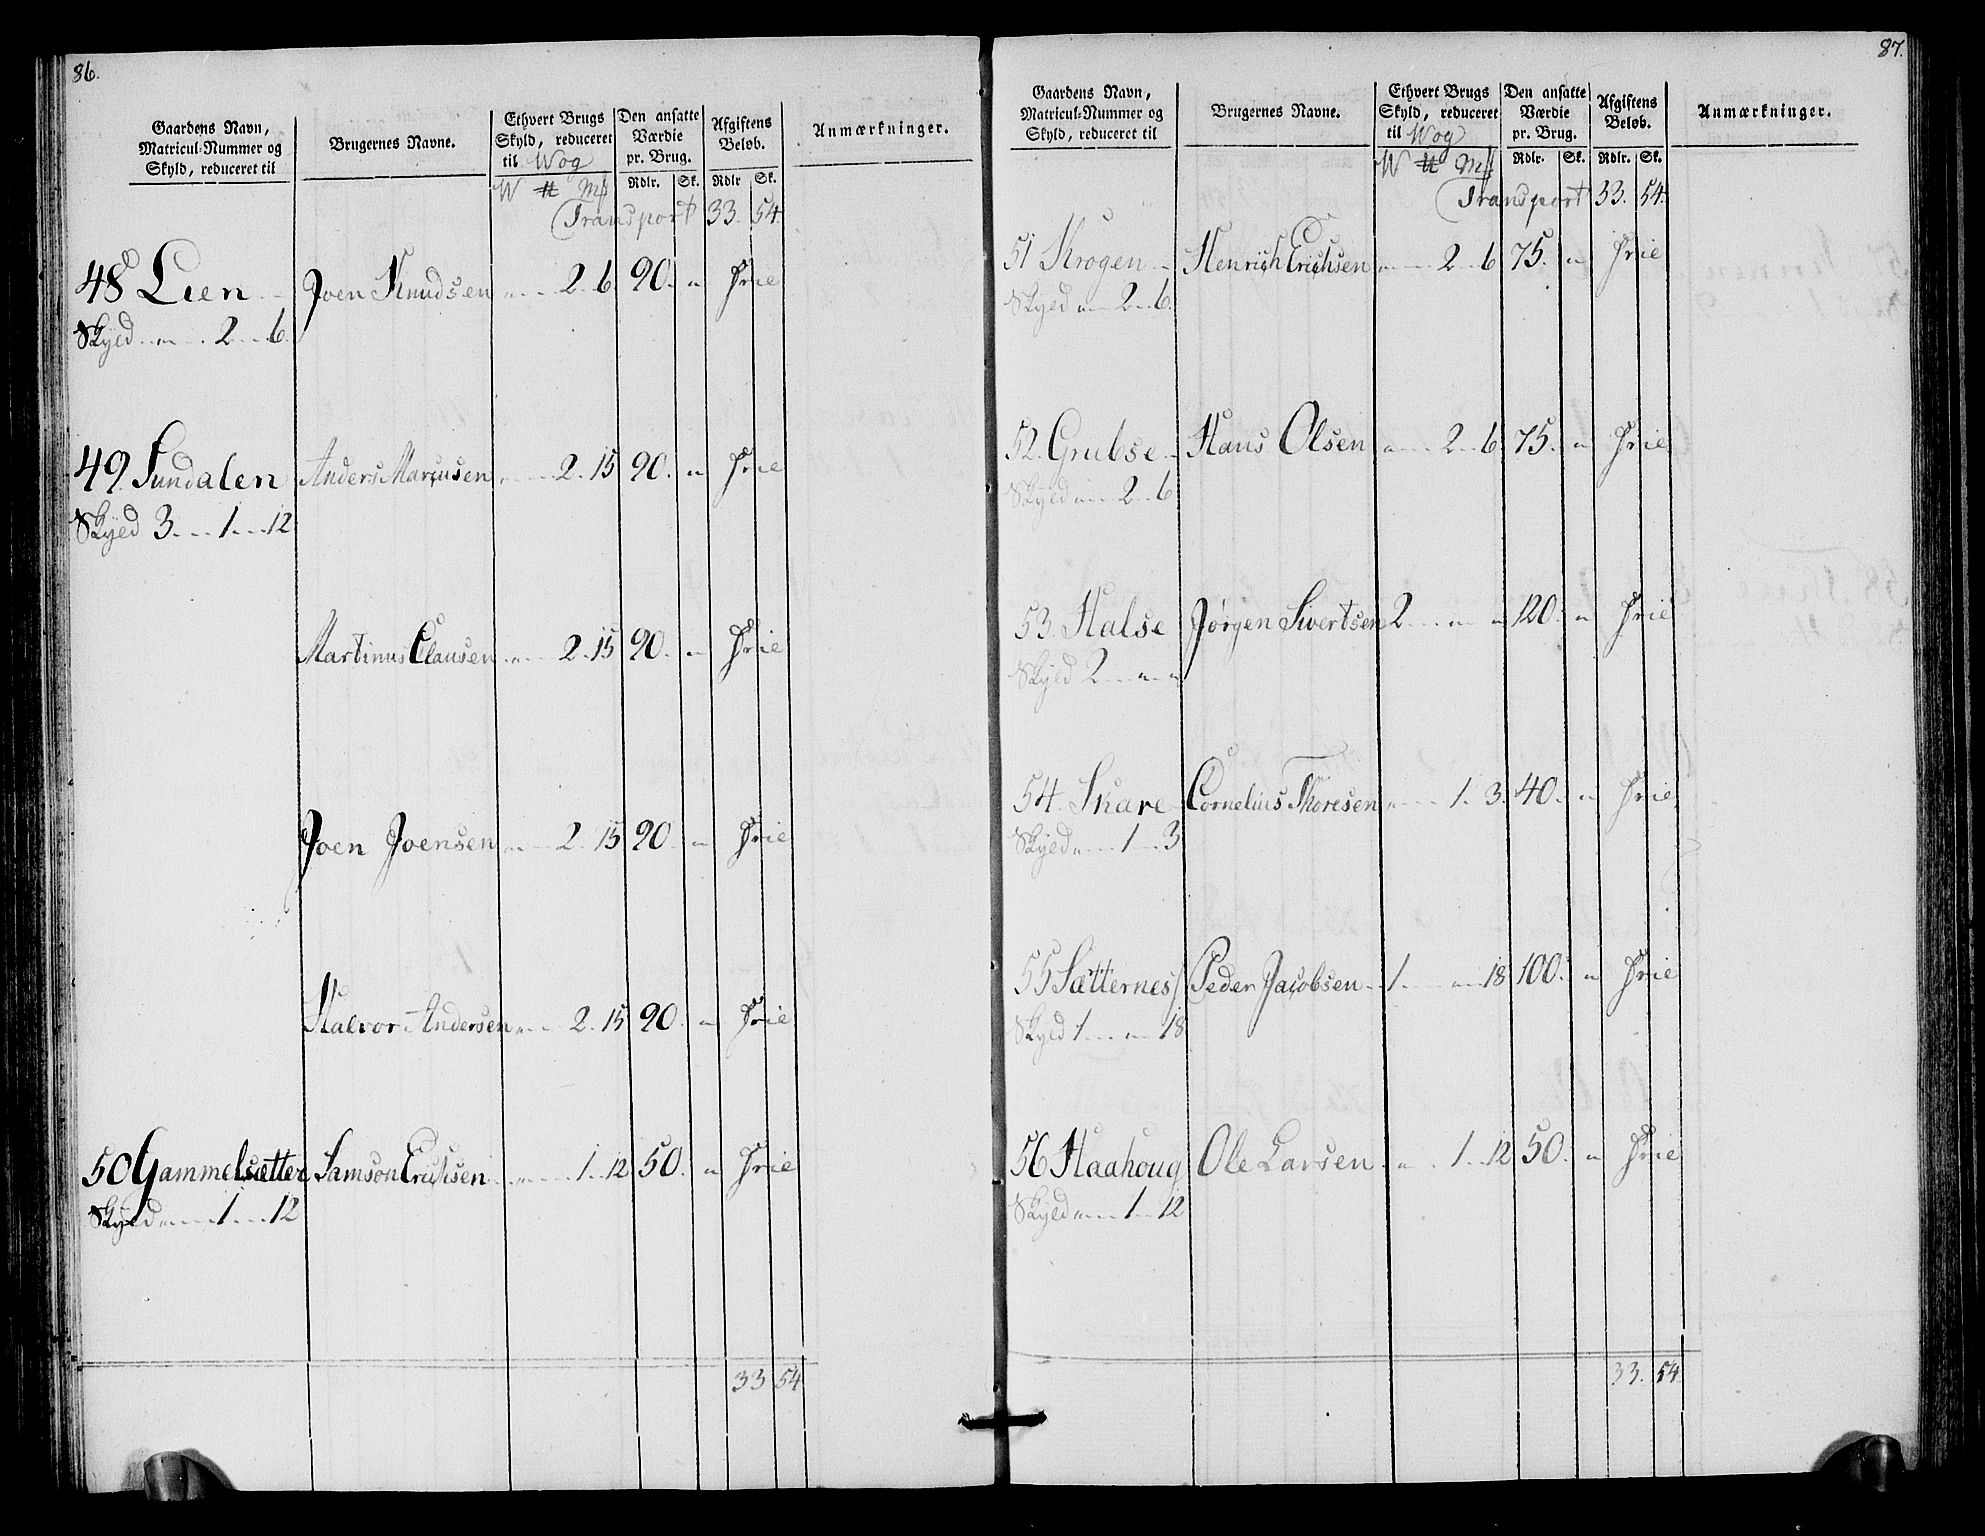 86.
Gaardens Navn, Matricul-Nummer og Skyld, reduceret til
Brugernes Navne.
Ethvert Brugs Skyld, reduceret til Wog
Den ansatte Værdie pr. Brug.
Afgiftens Beløb.
Anmærkninger.
W ℔ Mk
Rdlr. Sk. Rdlr Sk.
Transport 33. 54.
48 Lien Joen Knudsen „ 2. 6 90. „ Frie
Skyld „ 2 „ 6.
49. Sundalen Anders Marcusen „ 2. 15 90. „ Frie
Skyld 3 „ 1 „ 12
Martinus Clausen „ 2. 15 90. „ Frie
Joen Joensen „ 2. 15 90. „ Frie
Halvor Andersen „ 2. 15 90. „ Frie
50 Gammelsætter Samson Erichsen „ 1. 12 50. „ Frie
Skyld „ 1 „ 12
33 54
87.
Gaardens Navn, Matricul-Nummer og Skyld, reduceret til
Brugernes Navne.
Ethvert Brugs Skyld, reduceret til Wog
Den ansatte Værdie pr. Brug.
Afgiftens Beløb.
Anmærkninger.
W ℔ Mk
Rdlr. Sk. Rdlr. Sk.
Transport 33. 54.
51 Krogen Henrich Erichsen „ 2 „ 6 75. „ Frie
Skyld „ 2 „ 6.
52. Grubse Hans Olsen „ 2 „ 6 75. „ Frie
Skyld „ 2 „ 6
53. Halse Jørgen Sivertsen 2 „ „ 120. „ Frie
Skyld 2 „ „
54. Skare Cornelius Thoresen „ 1. 3. 40. „ Frie
Skyld „ 1 „ 3
55 Sætternes Peder Jacobsen 1. „ 18 100. „ Frie
Skyld 1 „ 18
56 Haahoug Ole Larsen „ 1. 12 50. „ Frie
Skyld „ 1 „ 12
33. 54.